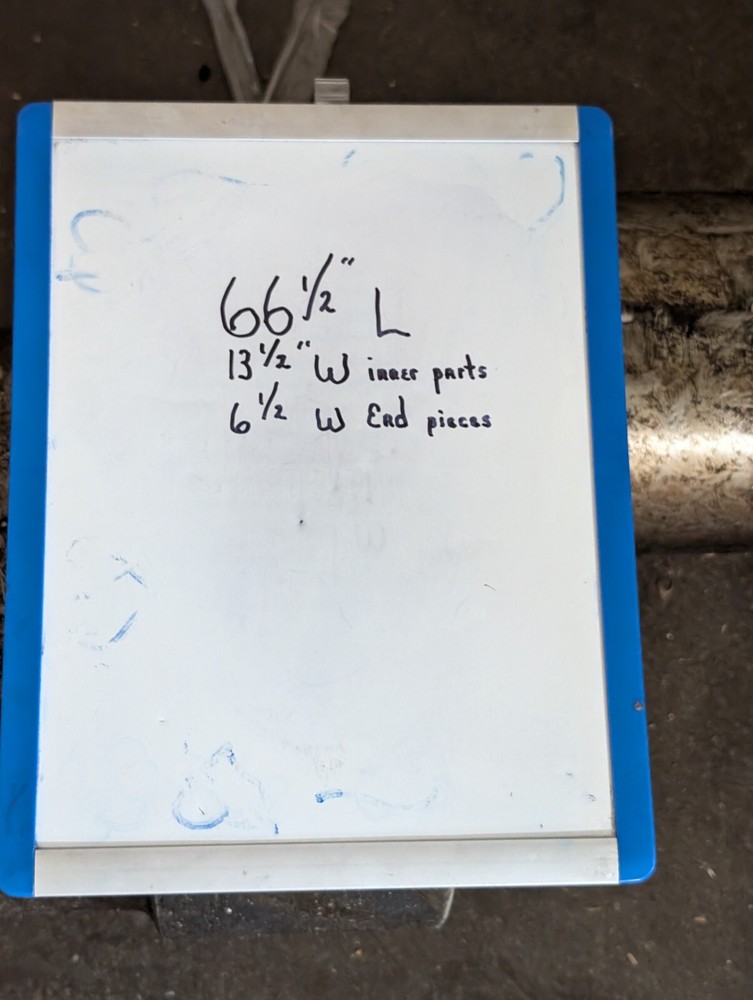 66 1/2" L
13 1/2" W inner parts
6 1/2 W End pieces